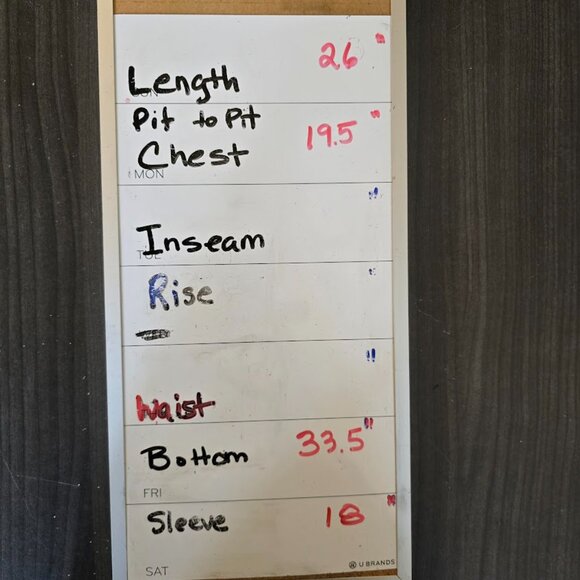 Length 26 "
Pit to Pit
Chest 19.5 "
MON
"
Inseam
"
Rise
"
Waist
Bottom 33.5"
FRI
Sleeve 18 "
SAT U BRANDS